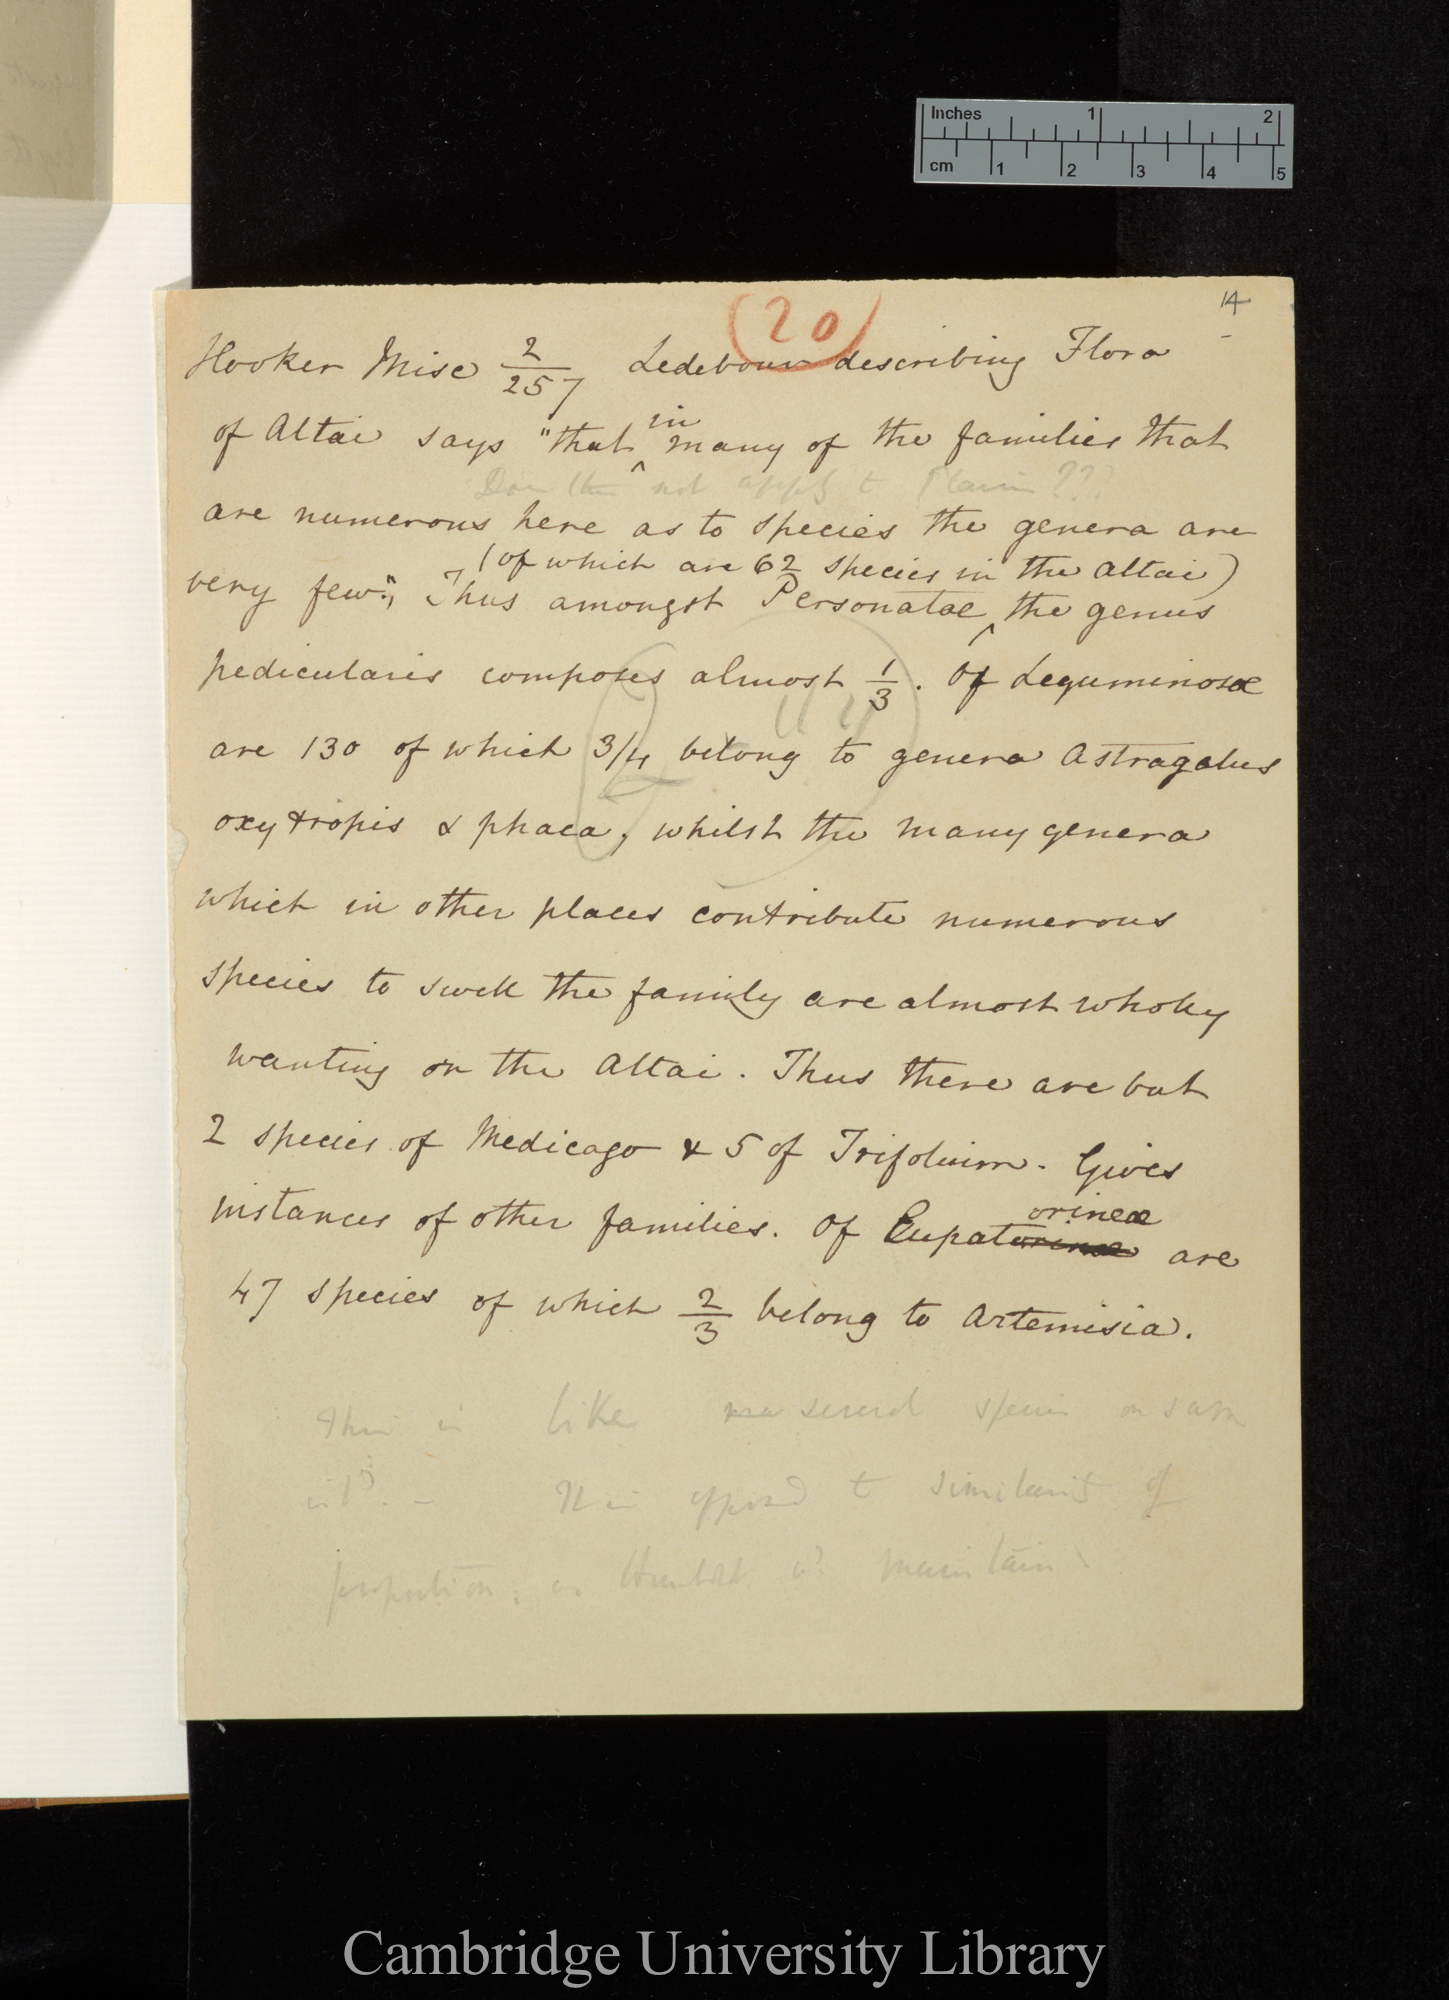 Inches 1 2
cm 1 2 3 4 5
20
14
Hooker Misc 2/257 Ledebour describing Flora
of Altai says "that in many of the families that
Does this not apply to Plains???
are numerous here as to species the genera are
(of which are 62 species in the Altai)
very few". Thus amongst Personatae the genus
pedicularis composes almost 1/3. Of Leguminosae
are 130 of which 3/4 belong to genera Astragalus
oxytropis & phaca, whilst the many genera
which in other places contribute numerous
species to swell the family are almost wholly
wanting on the Altai. Thus there are but
2 species of Medicago & 5 of Trifolium. Gives
instances of other families. Of Eupatorineae are
47 species of which 2/3 belong to Artemisia.
This is like several species on same
isld. — It is opposed to similarity of
proportion, as Humboldt wd maintain
Cambridge University Library